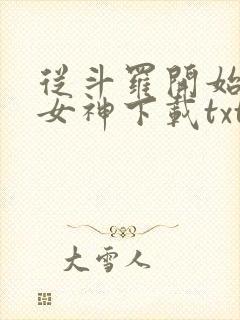 從斗羅開始
女神下載txt
大雪人